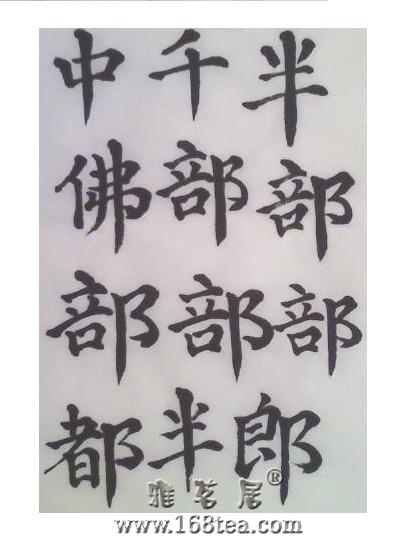 中千半
佛部部
部部部
都半郎
雅茗居®
www.168tea.com